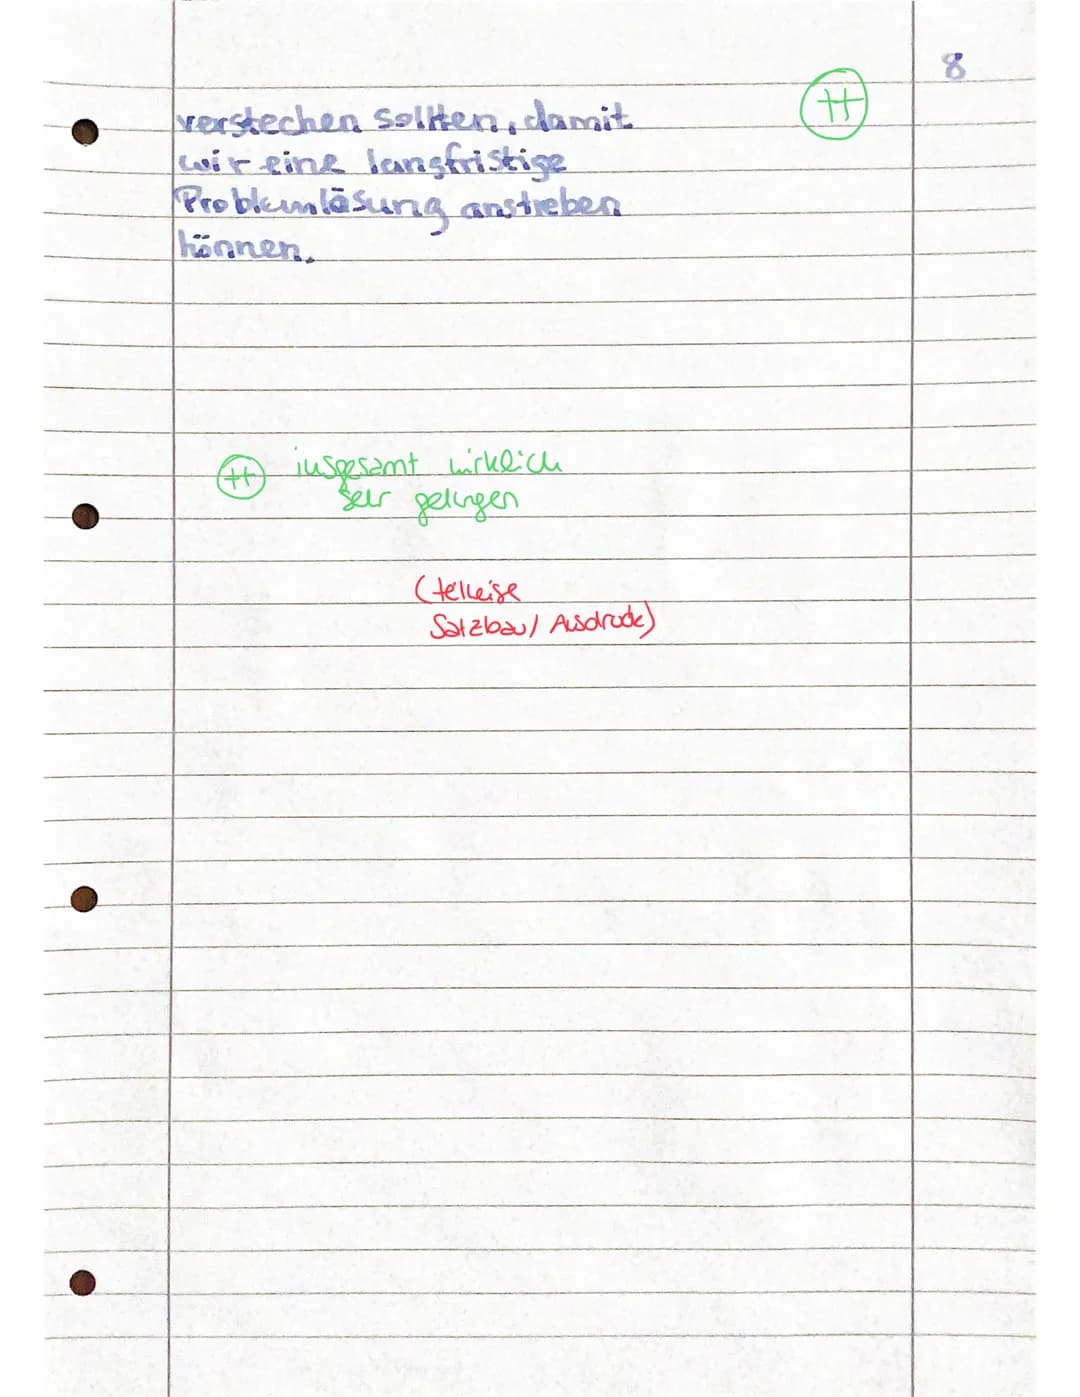 8
verstechen sollten, damit
++
wir eine langfristige
Problemläsung anstreben
können.
++ insgesamt wirklich
sehr gelungen
(teilweise
Satzbau / Ausdruck)